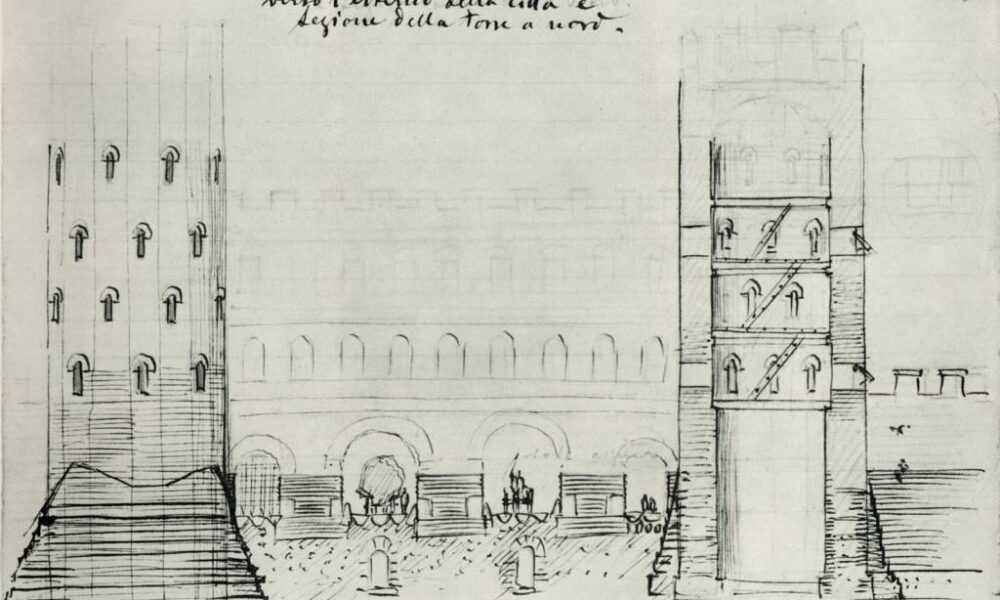 verso l'esterno della città e
Sezione della torre a nord.